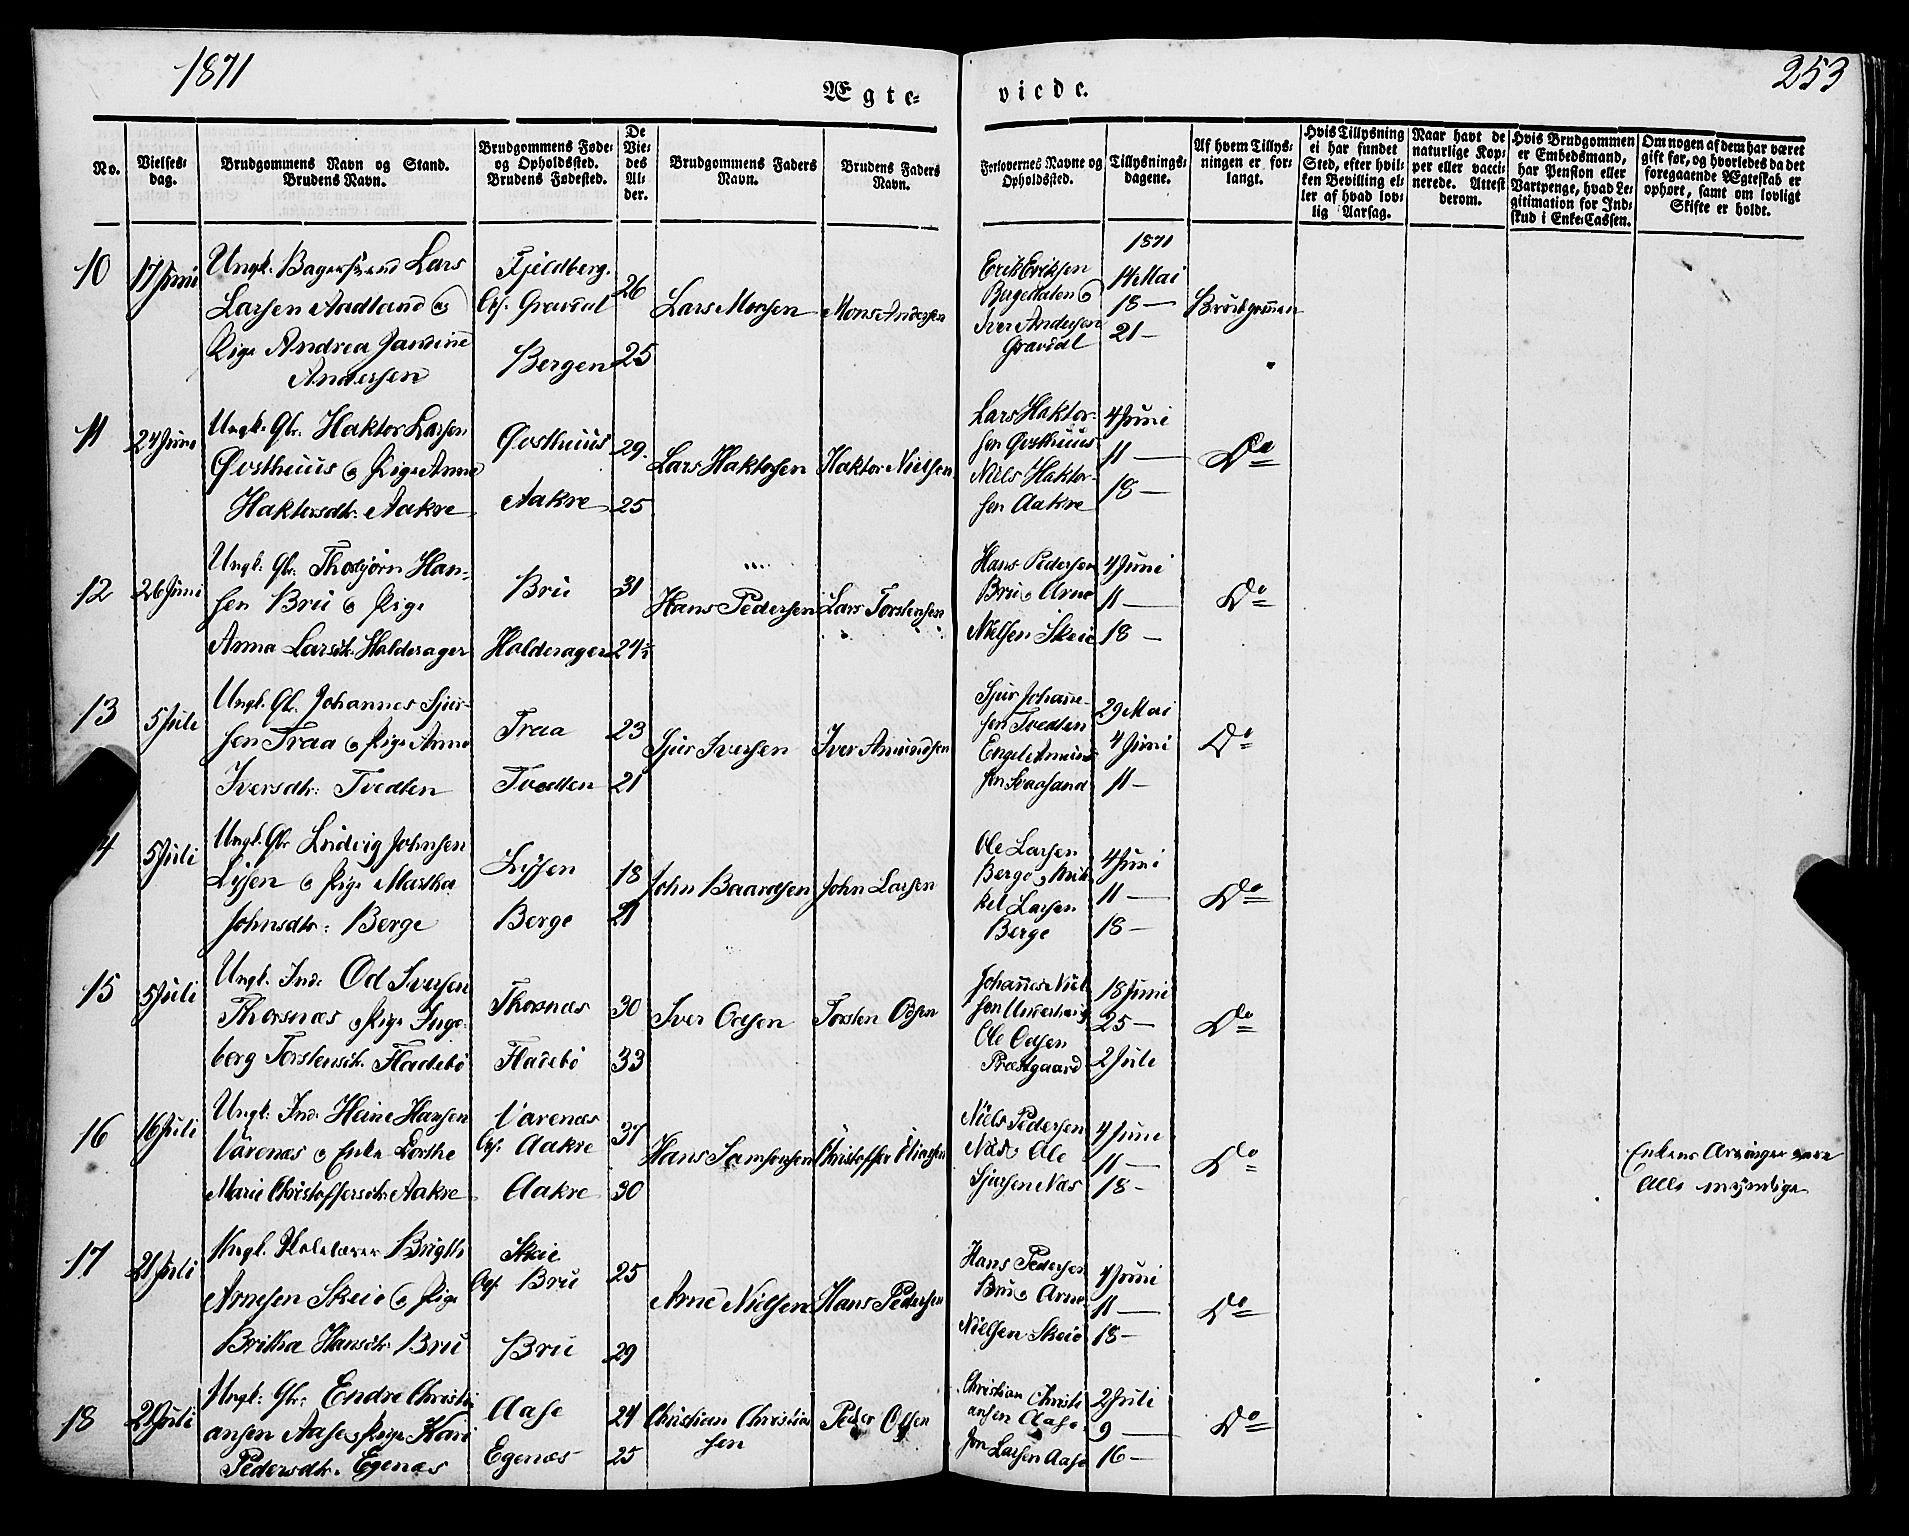 1871
253
Ægte-
viede.
No.
Vielses-
dag.
Brudgommens Navn og Stand.
Brudens Navn.
Brudgommens Føde-
og Opholdssted.
Brudens Fødested.
De
Vie-
des
Al-
der.
Brudgommens Faders
Navn.
Brudens Faders
Navn.
Forlovernes Navne og
Opholdssted.
Tillysnings-
dagene.
Af hvem Tillys-
ningen er for-
langt.
Hvis Tillysning
ei har fundet
Sted, efter hvil-
ken Bevilling el-
ler af hvad lov-
lig Aarsag.
Naar havt de
naturlige Kop-
per eller vacci-
nerede. Attest
derom.
Hvis Brudgommen
er Embedsmand,
har Pension eller
Vartpenge, hvad Le-
gitimation for Ind-
skud i Enke-Cassen.
Om nogen af dem har været
gift før, og hvorledes da det
foregaaende Ægteskab er
ophørt, samt om lovligt
Skifte er holdt.
10
17 Juni
Ungk. Bagersvend Lars
Larsen Aadland og
Pige Andrea Jandine
Andersen
Fjeldberg.
Op. Gravdal
Bergen
26
25
Lars Monsen
Mons Andersen
Erik Eriksen
Bergedalen og
Iver Andersen
Gravdal
1871
14 Mai
18 —
21 —
Brudgommen
11
24 Juni
Ungk. Gbr. Haktor Larsen
Østhuus og Pige Anna
Haktorsdtr. Aakre
Østhuus
Aakre
29.
25
Lars Haktorsen
Haktor Nielsen
Lars Haktor-
sen Østhuus
Niels Haktor-
sen Aakre
4 Juni
11 —
18 —
Do
12
26 Juni
Ungk. Gbr. Thorbjørn Han-
sen Bru og Pige
Anna Larsdtr. Halderager
Bru
Halderager
31
24½
Hans Pedersen
Lars Torstensen
Hans Pedersen
Bru og Arne
Nielsen Skeie
4 Juni
11 —
18 —
Do
13
5 Juli
Ungk. Gbr. Johannes Sjur-
sen Traa og Pige Anna
Iversdtr. Tvedten
Traa
Tvedten
23
21
Sjur Iversen
Iver Amundsen
Sjur Johanne-
sen Tvedten
Engel Amund
sen Svaasand
29 Mai
4 Juni
11 —
Do
4
5 Juli
Ungk. Gbr. Ludvig Johnsen
Lysen og Pige Martha
Johnsdtr. Berge
Lysen
Berge
18
21
John Baardsen
John Larsen
Ole Larsen
Berge og Mik
kel Larsen
Berge
4 Juni
11 —
18 —
Do
15
5 Juli
Ungk. Ind. Od Iversen
Thorsnæs og Pige Inge-
berg Torstensdtr. Fladebø
Thorsnæs
Fladebø
30
33
Iver Odsen
Torsten Odsen
Johannes Niel
Ole Odsen
Præstgaard
18 Juni
25 —
2 Juli
Do
16
16 Juli
Ungk. Ind. Heine Hansen
Varenæs og Enke Dorthe
Marie Christoffersdtr. Aakre
Varenæs
Op. Aakre
Aakre
37
30
Hans Samsonsen
Christoffer
Niels Pedersen
Næs og Ole
Sjursen Næs
4 Juni
11 —
18 —
Do
Enkens Arvinger vare
Alle myndige
17
21 Juli
Ungk. Skolelærer Brigth
Arnesen Skeie og Pige
Britha Hansdtr. Bru
Skeie
Op. Bru
Bru
25
29
Arne Nielsen
Hans Pedersen
Hans Pedersen
Bru og Arne
Nielsen Skeie
4 Juni
11 —
18 —
Do
18
21 Juli
Ungk. Gbr. Endre Christi
ansen Aase og Pige Kari
Pedersdtr. Egenæs
Aase
Egenæs
24
25
Christian Christian
sen
Peder Olsen
Christian Christi
ansen Aase
Jon Larsen Aase
2 Juli
9 —
16 —
Do